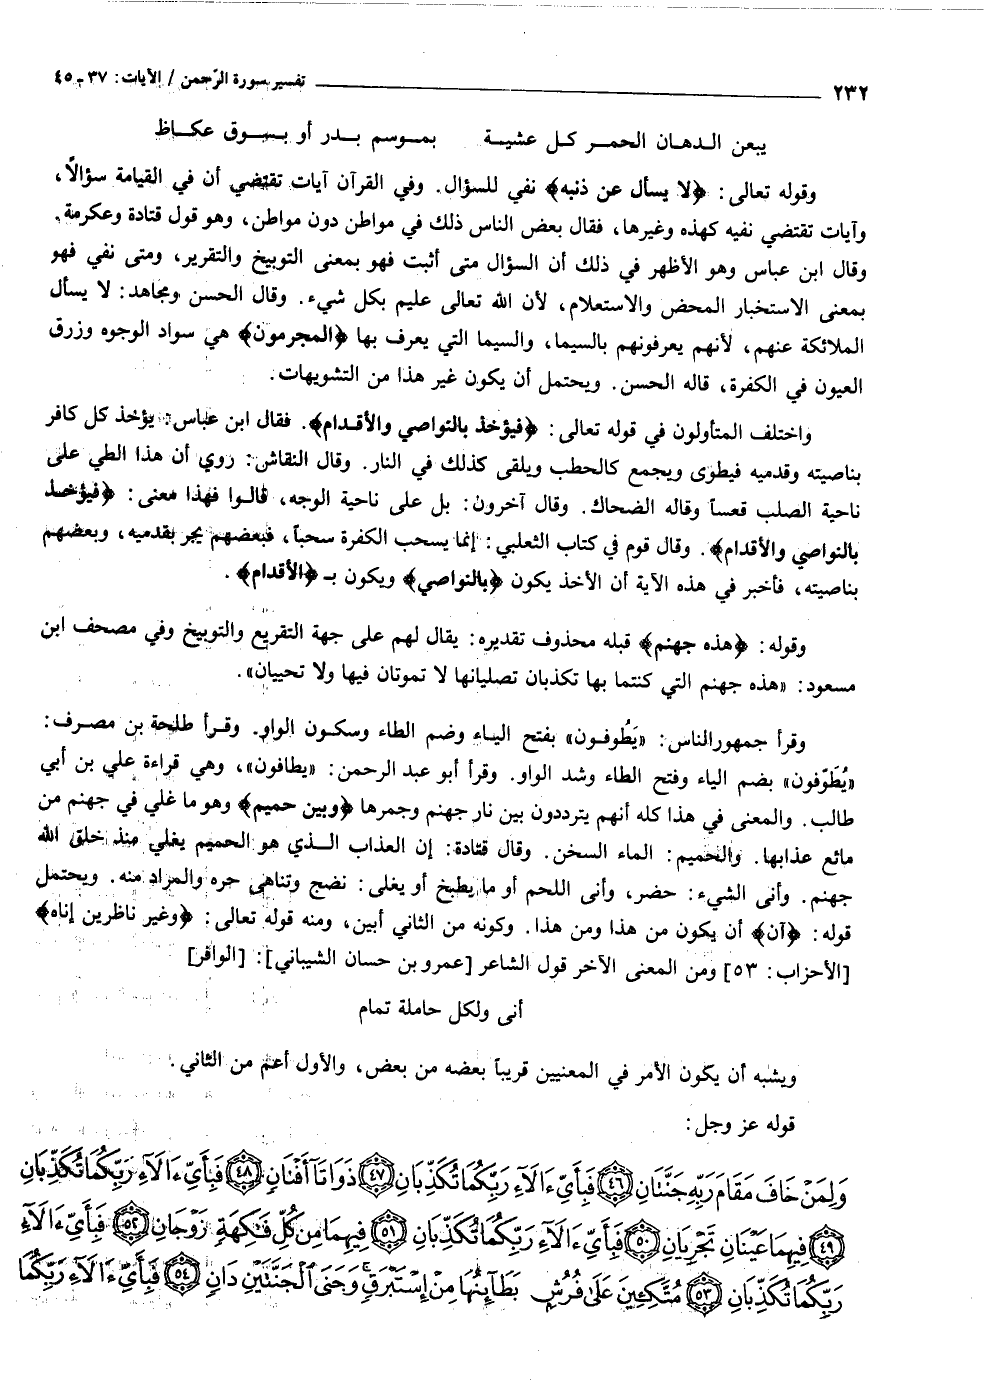 ٢٣٢ تفسير سورة الرّحمن / الآيات: ٣٧ - ٤٥
يبعن الدهان الحمر كل عشية بموسم بدر أو بسوق عكاظ
وقوله تعالى: ﴿لا يسأل عن ذنبه﴾ نفي للسؤال. وفي القرآن آيات تقتضي أن في القيامة سؤالاً،
وآيات تقتضي نفيه كهذه وغيرها، فقال بعض الناس ذلك في مواطن دون مواطن، وهو قول قتادة وعكرمة.
وقال ابن عباس وهو الأظهر في ذلك أن السؤال متى أثبت فهو بمعنى التوبيخ والتقرير، ومتى نفي فهو
بمعنى الاستخبار المحض والاستعلام، لأن الله تعالى عليم بكل شيء. وقال الحسن ومجاهد: لا يسأل
الملائكة عنهم، لأنهم يعرفونهم بالسيما، والسيما التي يعرف بها ﴿المجرمون﴾ هي سواد الوجوه وزرق
العيون في الكفرة، قاله الحسن. ويحتمل أن يكون غير هذا من التشويهات.
واختلف المتأولون في قوله تعالى: ﴿فيؤخذ بالنواصي والأقدام﴾. فقال ابن عباس: يؤخذ كل كافر
بناصيته وقدميه فيطوى ويجمع كالحطب ويلقى كذلك في النار. وقال النقاش: روي أن هذا الطي على
ناحية الصلب قعساً وقاله الضحاك. وقال آخرون: بل على ناحية الوجه، قالوا فهذا معنى: ﴿فيؤخذ
بالنواصي والأقدام﴾. وقال قوم في كتاب الثعلبي: إنما يسحب الكفرة سحباً، فبعضهم يجر بقدميه، وبعضهم
بناصيته، فأخبر في هذه الآية أن الأخذ يكون ﴿بالنواصي﴾ ويكون بـ ﴿الأقدام﴾.
وقوله: ﴿هذه جهنم﴾ قبله محذوف تقديره: يقال لهم على جهة التقريع والتوبيخ وفي مصحف ابن
مسعود: «هذه جهنم التي كنتما بها تكذبان تصليانها لا تموتان فيها ولا تحييان».
وقرأ جمهور الناس: «يَطُوفون» بفتح الياء وضم الطاء وسكون الواو. وقرأ طلحة بن مصرف:
«يُطَوّفون» بضم الياء وفتح الطاء وشد الواو. وقرأ أبو عبد الرحمن: «يطافون»، وهي قراءة علي بن أبي
طالب. والمعنى في هذا كله أنهم يترددون بين نار جهنم وجمرها ﴿وبين حميم﴾ وهو ما غلي في جهنم من
مائع عذابها. والحميم: الماء السخن. وقال قتادة: إن العذاب الذي هو الحميم يغلي منذ خلق الله
جهنم. وأنى الشيء: حضر، وأنى اللحم أو ما يطبخ أو يغلى: نضج وتناهى حره والمراد منه. ويحتمل
قوله: ﴿آن﴾ أن يكون من هذا ومن هذا. وكونه من الثاني أبين، ومنه قوله تعالى: ﴿وغير ناظرين إناه﴾
[الأحزاب: ٥٣] ومن المعنى الآخر قول الشاعر [عمرو بن حسان الشيباني]: [الوافر]
أنى ولكل حاملة تمام
ويشبه أن يكون الأمر في المعنيين قريباً بعضه من بعض، والأول أعم من الثاني.
قوله عز وجل:
وَلِمَنْ خَافَ مَقَامَ رَبِّهِ جَنَّتَانِ ٤٦ فَبِأَيِّ ءَالَآءِ رَبِّكُمَا تُكَذِّبَانِ ٤٧ ذَوَاتَآ أَفْنَانٍ ٤٨ فَبِأَيِّ ءَالَآءِ رَبِّكُمَا تُكَذِّبَانِ
٤٩ فِيهِمَا عَيْنَانِ تَجْرِيَانِ ٥٠ فَبِأَيِّ ءَالَآءِ رَبِّكُمَا تُكَذِّبَانِ ٥١ فِيهِمَا مِن كُلِّ فَٰكِهَةٍ زَوْجَانِ ٥٢ فَبِأَيِّ ءَالَآءِ
رَبِّكُمَا تُكَذِّبَانِ ٥٣ مُتَّكِـِٔينَ عَلَىٰ فُرُشٍۭ بَطَآئِنُهَا مِنْ إِسْتَبْرَقٍ وَجَنَى ٱلْجَنَّتَيْنِ دَانٍ ٥٤ فَبِأَيِّ ءَالَآءِ رَبِّكُمَا